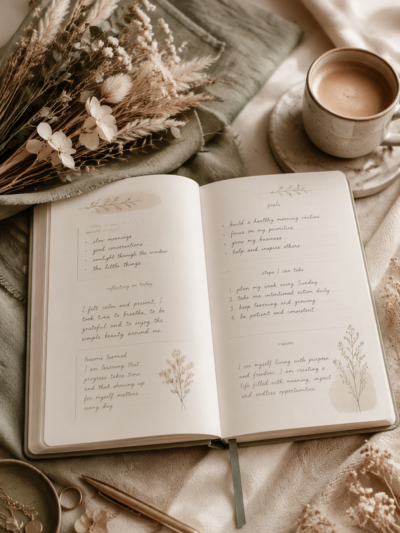 slow mornings
good conversations
sunlight through the window
the little things
reflecting on today
I felt calm and present. I
took time to breathe, to be
grateful and to enjoy the
simple beauty around me.
lessons learned
I am learning that
progress takes time
and that showing up
for myself matters
every day.
goals
build a healthy morning routine
focus on my priorities
grow my business
help and inspire others
steps I can take
1. plan my week every Sunday
2. take one intentional action daily
3. keep learning and growing
4. be patient and consistent
vision
I see myself living with purpose
and freedom. I am creating a
life filled with meaning, impact
and endless opportunities.